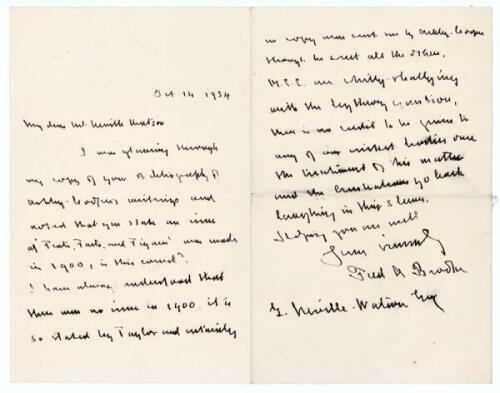 Oct 14 1934
My dear Mr Neville Watson
I was glancing through
my copy of your Bibliography of
Ashley-Cooper's writings and
noticed that you state an issue
of 'Feats, Facts, and Figures' was made
in 1900, is this correct?
I have always understood that
there was no issue in 1900. it is
so stated by Taylor and certainly
no copy was sent me by Ashley-Cooper
though he sent all the others.
M.C.C. are shilly-shallying
with the leg theory question,
there is no credit to be given to
any of our cricket bodies over
the treatment of this matter
and the Australians go back
laughing in their sleeves.
I hope you are well
Yours sincerely
Fred A Brooke
G. Neville-Watson Esq